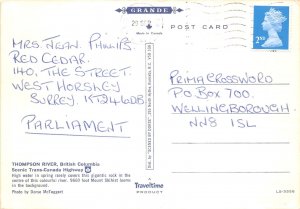 GRANDE
POST CARD
MRS. JEAN. PHILLIPS
RED CEDAR.
140, THE STREET.
WEST HORSLEY
SURREY.
PARLIAMENT
2ND
PRIMA CROSSWORD
PO BOX 700.
WELLINGBOROUGH
NN8 1SL
THOMPSON RIVER, British Columbia
Scenic Trans-Canada Highway
High water in spring nearly covers that gigantic rock in the
centre of this colourful river. 9660 foot Mount
in the background.
Photo by
Traveltime
PRODUCT